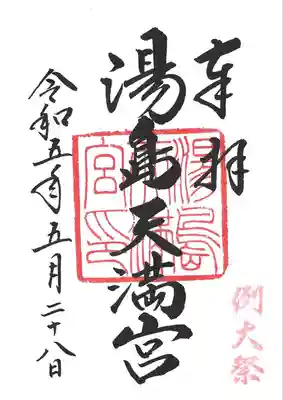 奉拝
湯島天満宮
令和五年五月二十八日
湯島天満宮印
例大祭